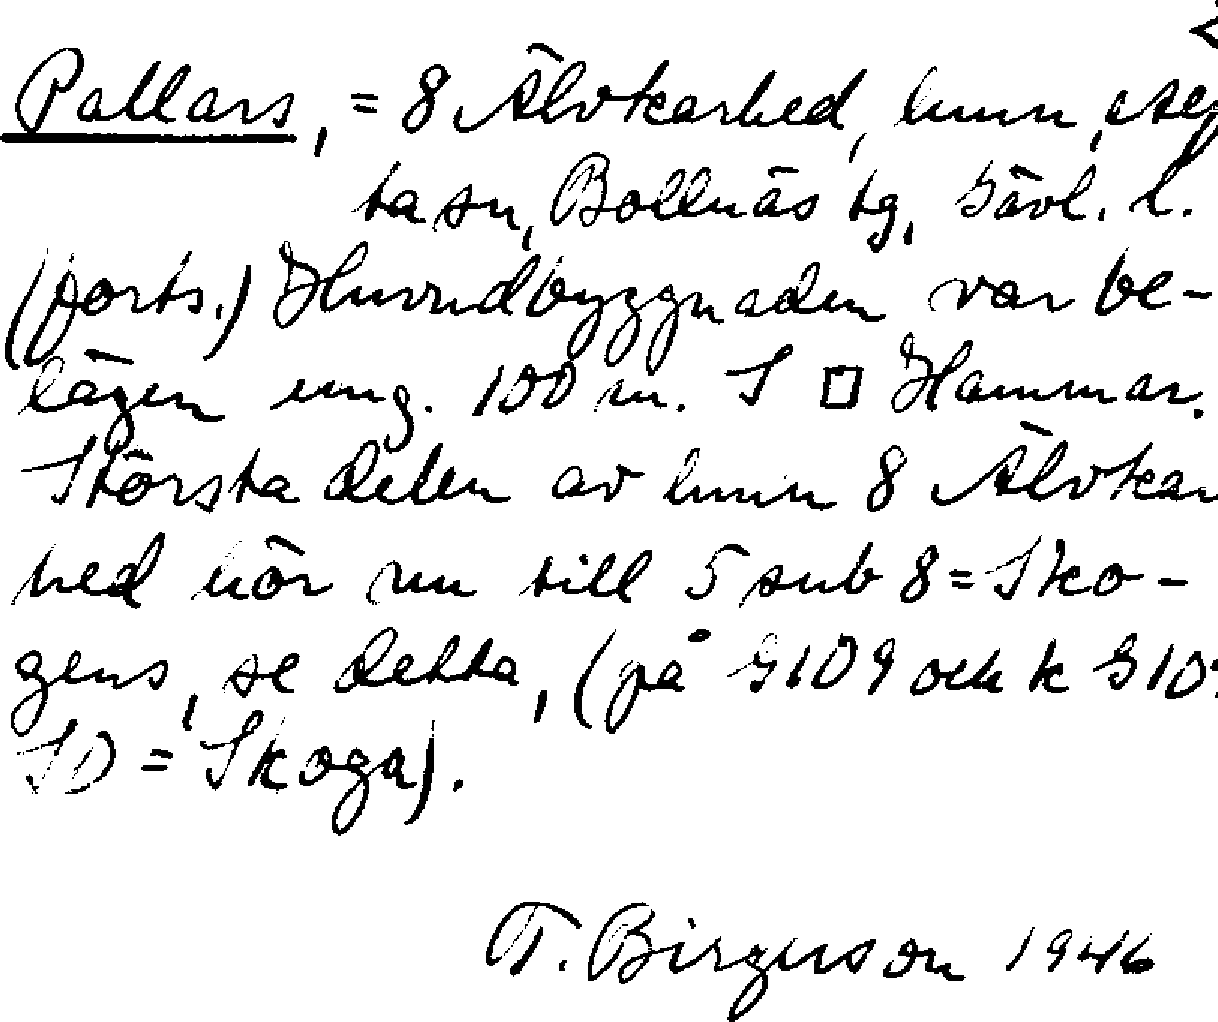 Pallars, = 8 Älvkarhed, hmn, Seg
ta sn, Bollnäs tg, Gävl. l.
(forts.) Huvudbyggnaden var be-
lägen ung. 100 m. S □ Hammar.
Största delen av hmn 8 Älvkar
hed hör nu till 5 sub 8 = Sko-
gens, se detta, (på G109 och k G109
SO = Skoga).
T. Birguson 1946